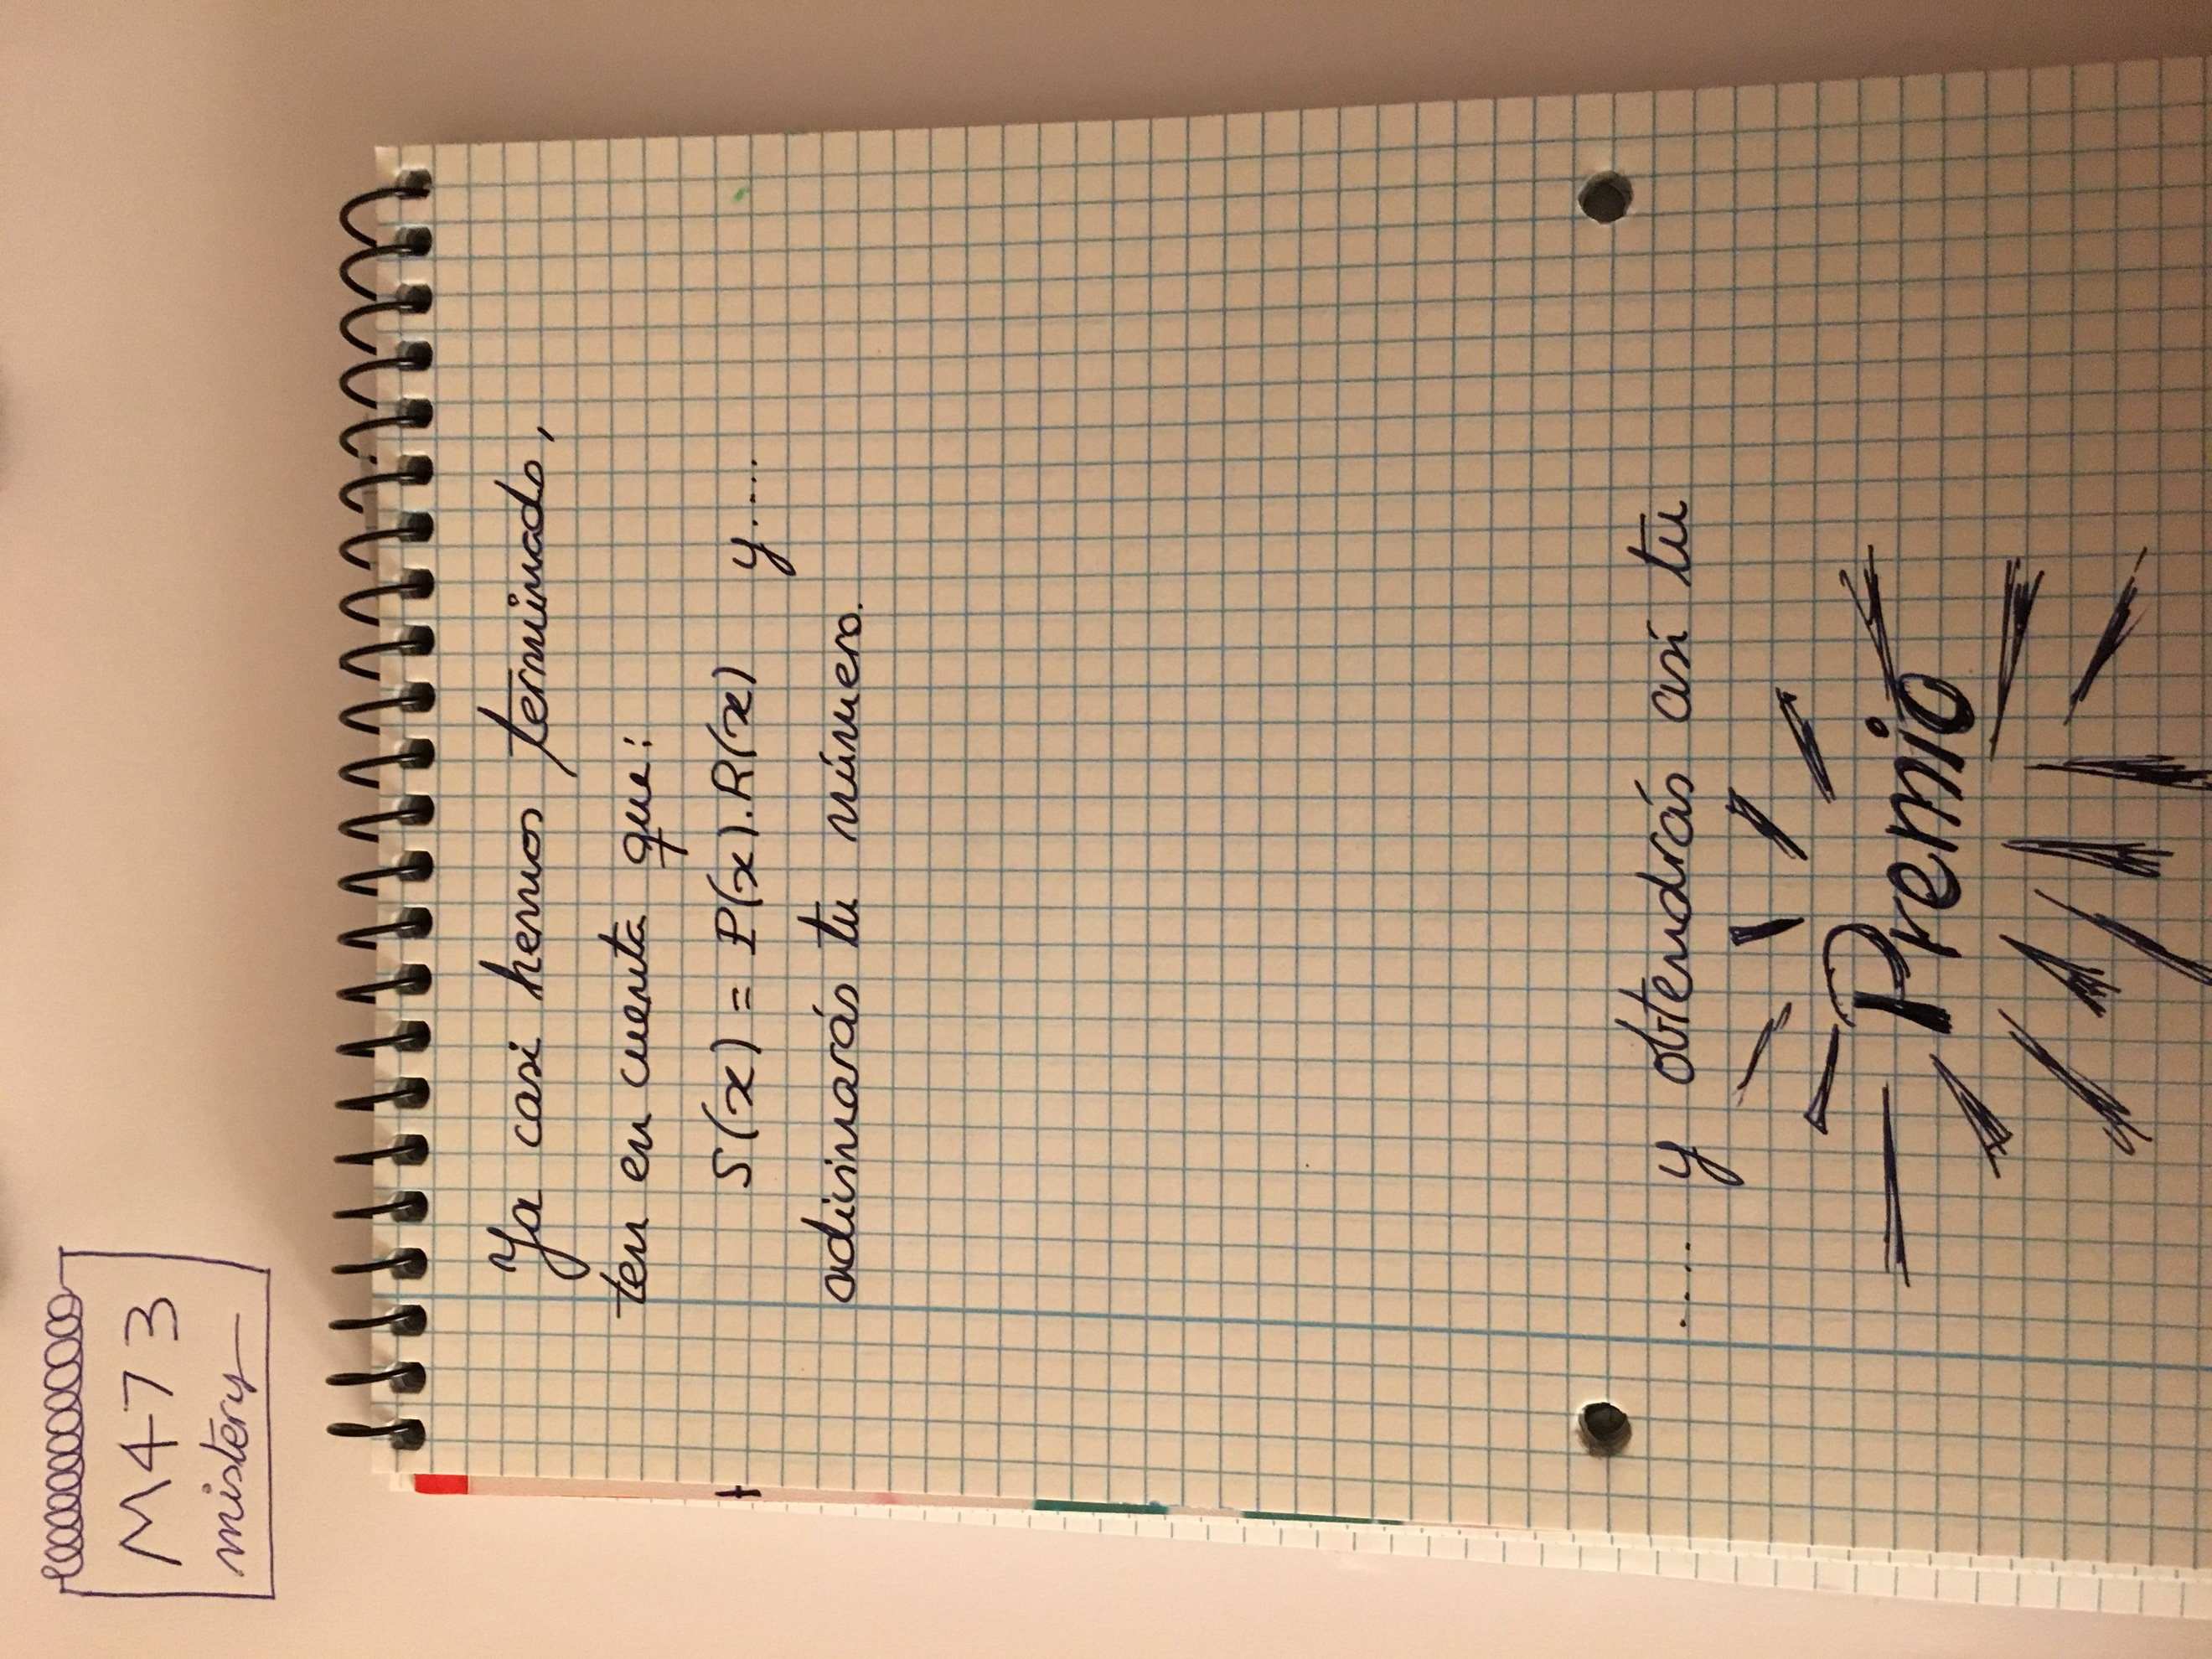 M473
mistery
Ya casi hemos terminado,
ten en cuenta que:
S(x) = P(x).R(x) y....
adivinarás tu número.
..... y obtendrás así tu
Premio